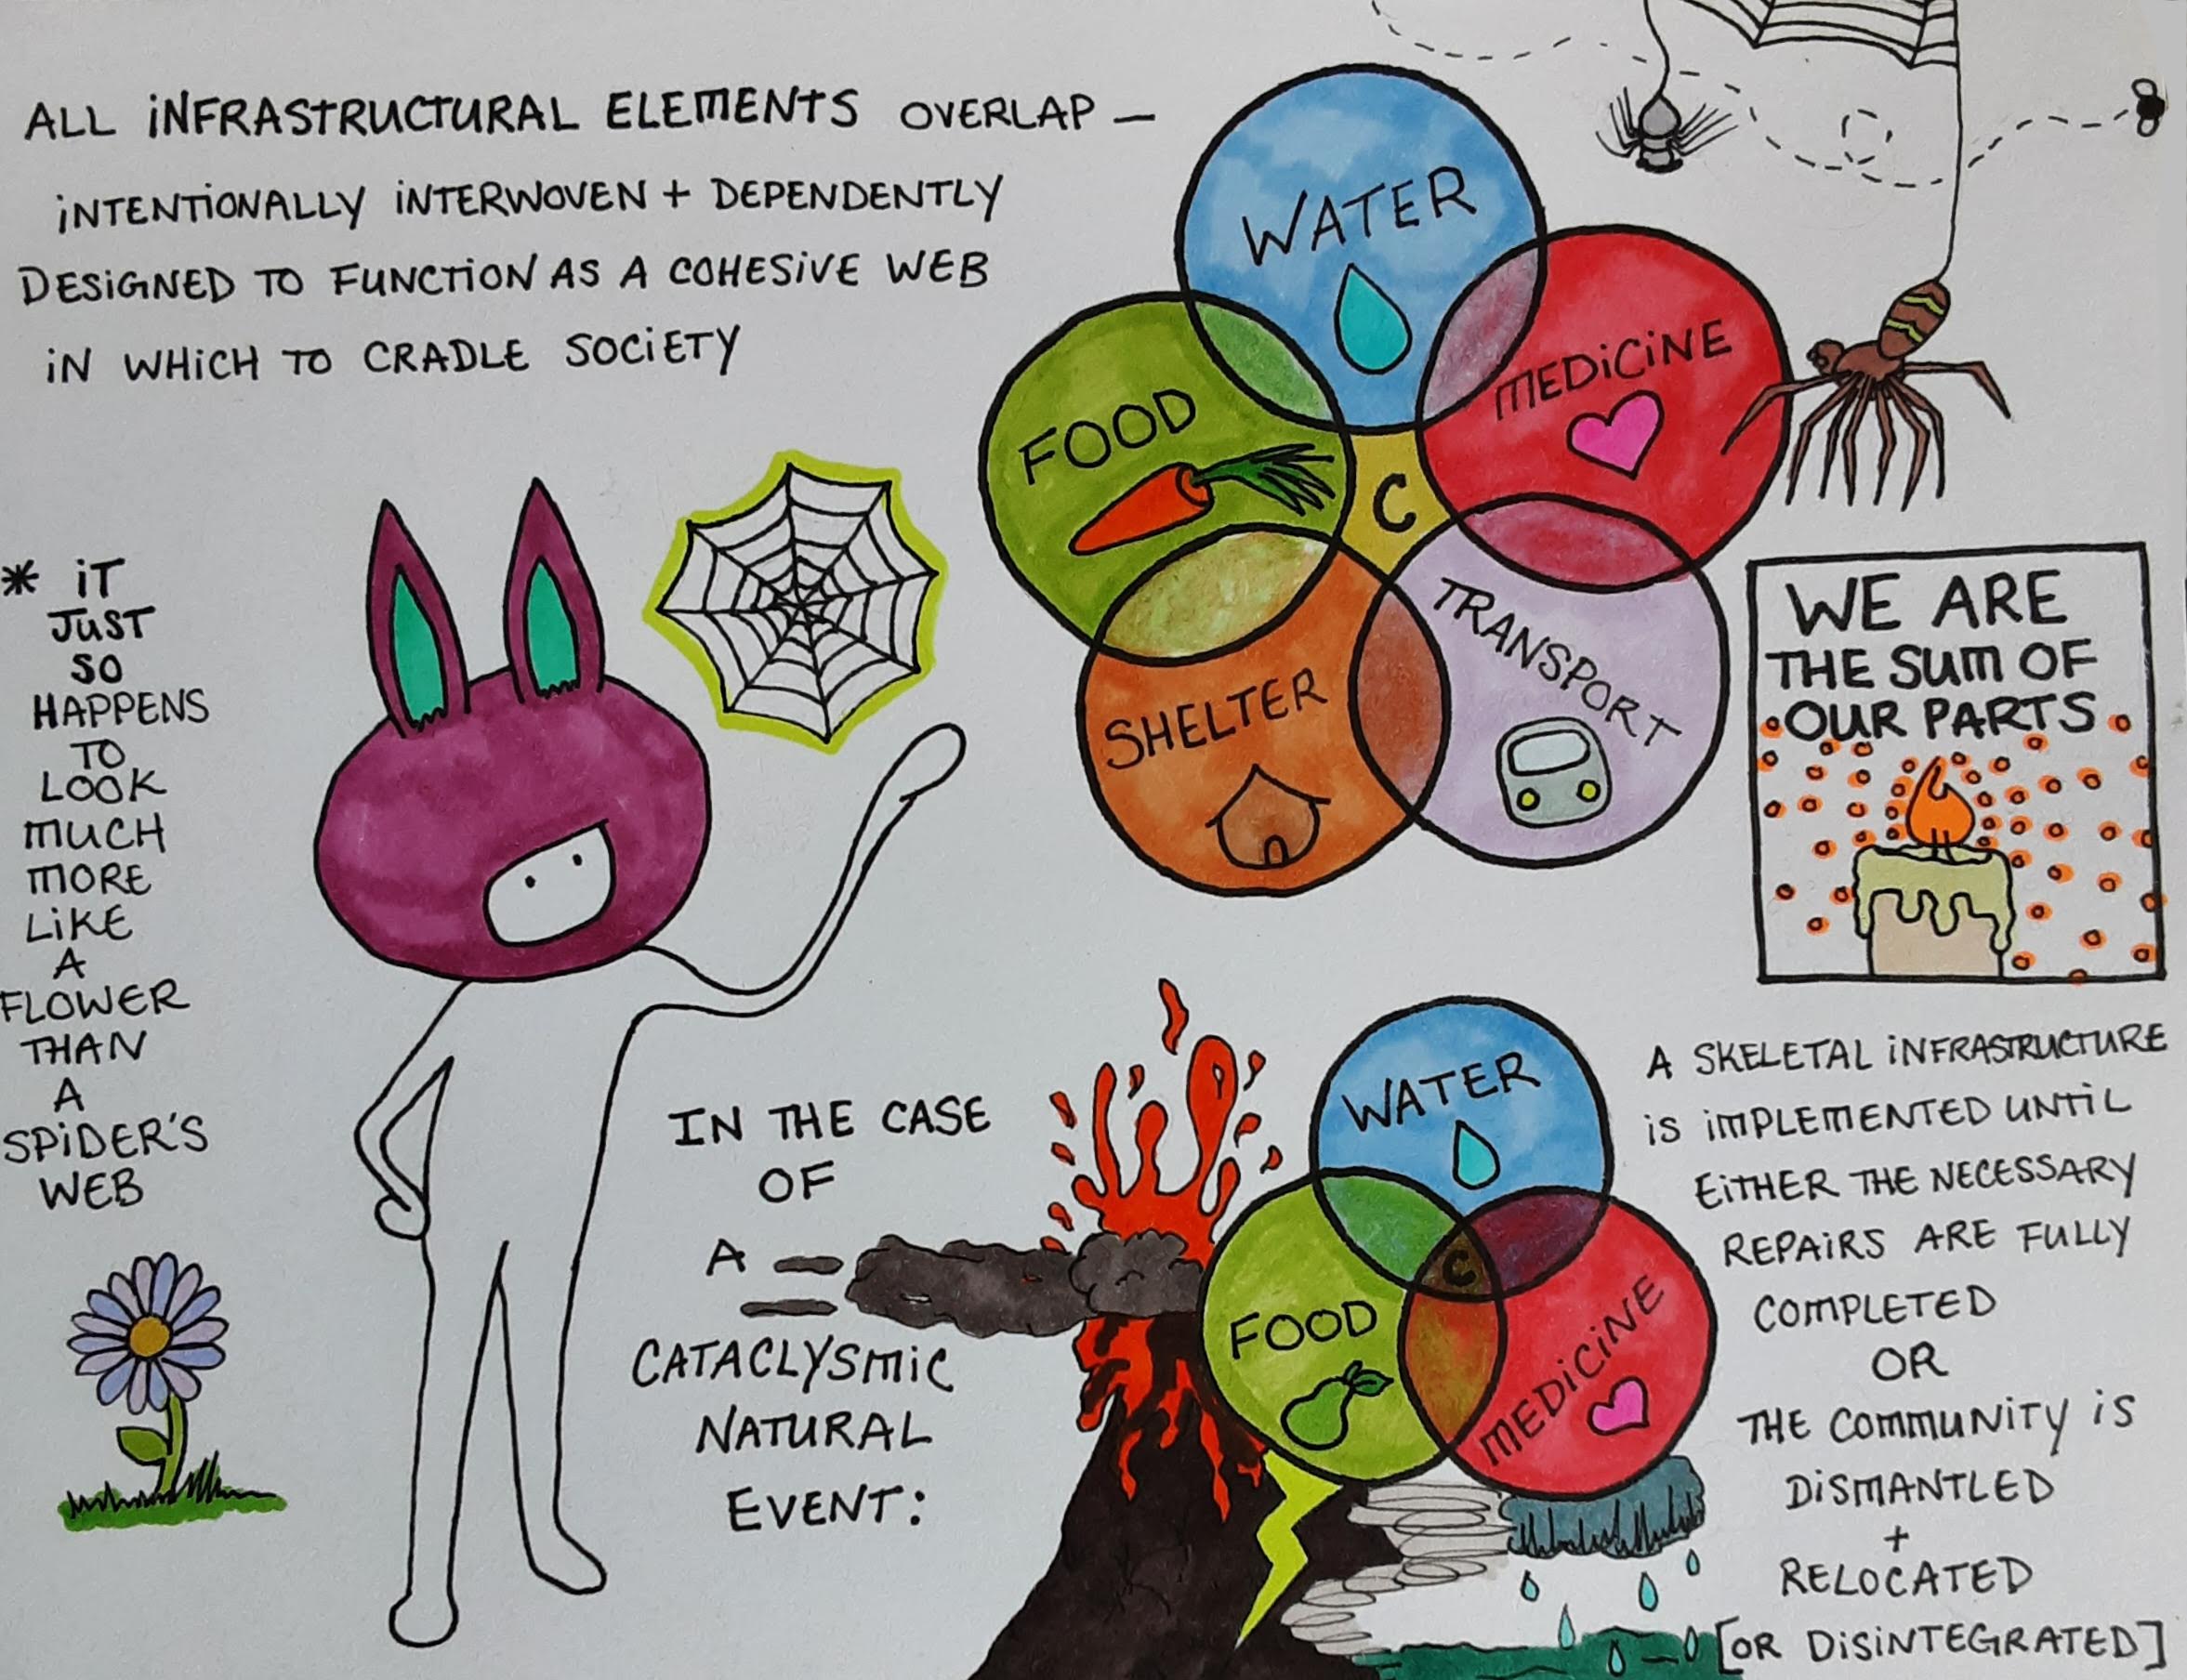 ALL INFRASTRUCTURAL ELEMENTS OVERLAP —
INTENTIONALLY INTERWOVEN + DEPENDENTLY
DESIGNED TO FUNCTION AS A COHESIVE WEB
IN WHICH TO CRADLE SOCIETY
WATER
MEDICINE
FOOD
C
TRANSPORT
SHELTER
* IT
JUST
SO
HAPPENS
TO
LOOK
MUCH
MORE
LIKE
A
FLOWER
THAN
A
SPIDER'S
WEB
WE ARE
THE SUM OF
OUR PARTS
IN THE CASE
OF
A
CATACLYSMIC
NATURAL
EVENT:
WATER
FOOD
C
MEDICINE
A SKELETAL INFRASTRUCTURE
IS IMPLEMENTED UNTIL
EITHER THE NECESSARY
REPAIRS ARE FULLY
COMPLETED
OR
THE COMMUNITY IS
DISMANTLED
+
RELOCATED
[OR DISINTEGRATED]